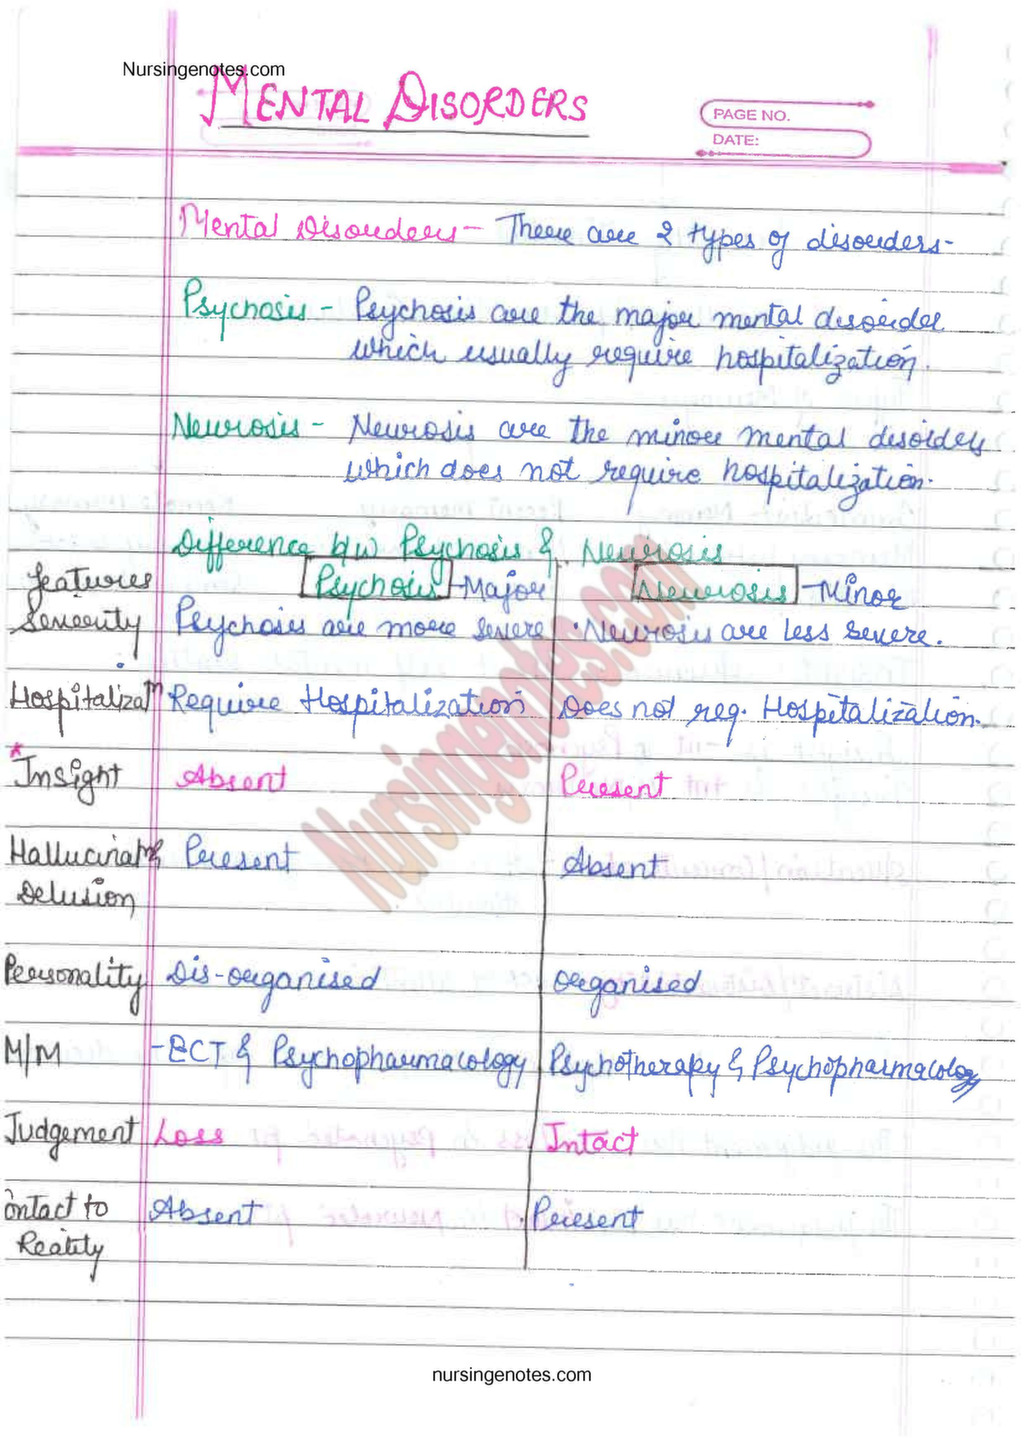 Nursingenotes.com
MENTAL DISORDERS
PAGE NO.
DATE:
Mental Disorders - There are 2 types of disorders-
Psychosis - Psychosis are the major mental disorder
which usually require hospitalization.
Neurosis - Neurosis are the minor mental disorders
which does not require hospitalization.
Difference b/w Psychosis & Neurosis
Features Psychosis - Major Neurosis - Minor
Severity Psychosis are more severe Neurosis are less severe.
Hospitalizatn Require Hospitalization Does not req. Hospitalization.
* Insight Absent Present
Hallucinatn & Present Absent
Delusion
Personality Dis-organised Organised
M/M - ECT & Psychopharmacology Psychotherapy & Psychopharmacology
Judgement Loss Intact
ontact to Absent Present
Reality
Nursingenotes.com
nursingenotes.com